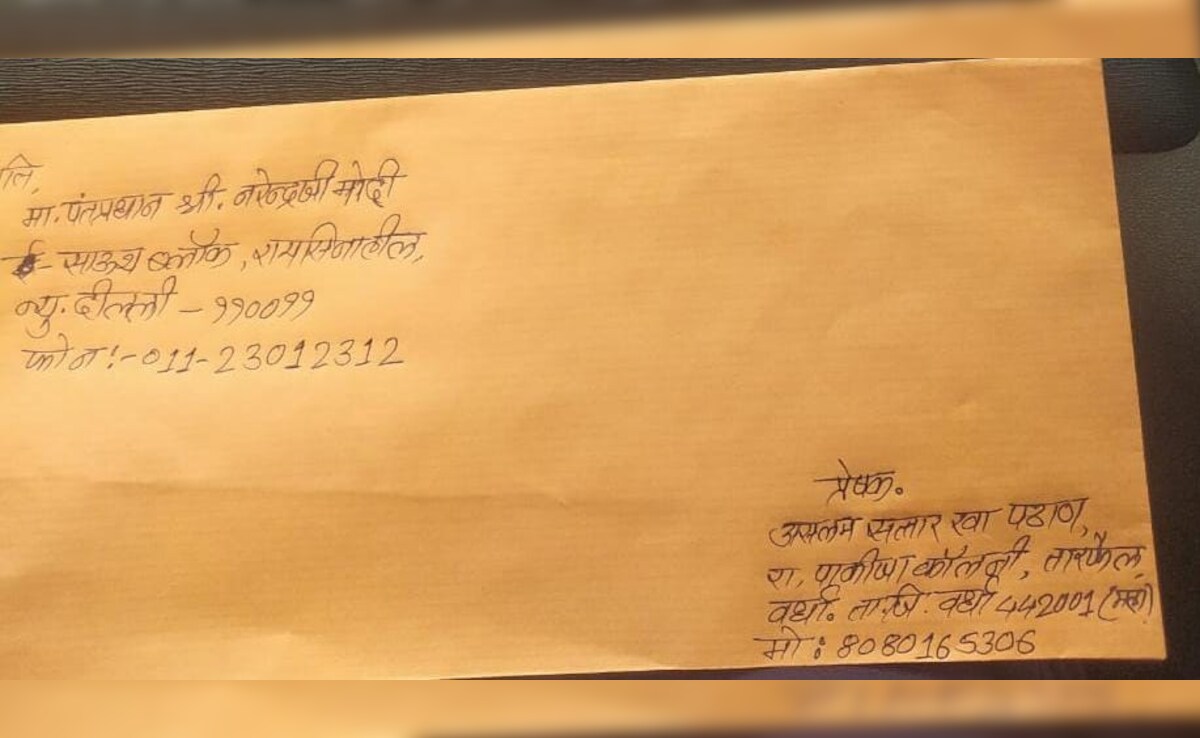 ति,
मा. पंतप्रधान श्री. नरेन्द्रजी मोदी
ई- साऊथ ब्लॉक, रायसिनाहील,
न्यु. दील्ली - ११००११
फोन :- 011-23012312
प्रेषक.
असलम सत्तार खा पठाण,
रा. कॉलनी, तारफैल,
वर्धा. ता.जि. वर्धा 442001 (महा)
मो : 8080165306